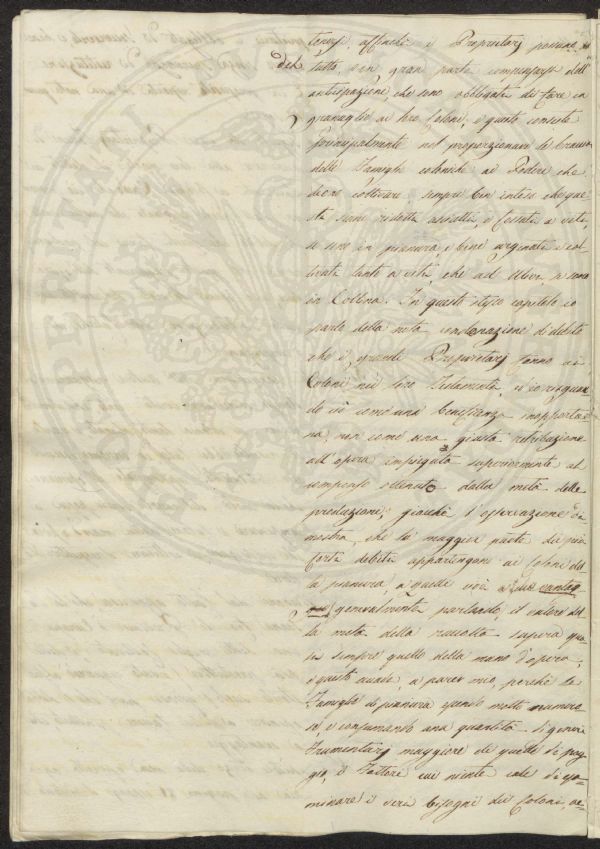 tenersi, affinchè i Proprietarj possano, se
del tutto, o in gran parte compensarsi dell'
anticipazione, che sono obbligati di fare in
granaglie ai loro Coloni, e questo consiste
principalmente nel proporzionare le braccia
delle Famiglie coloniche ai Podere che
devono coltivare, sempre ben inteso che que
sti siano ridotti asciutti, e fossati a viti,
se sono in pianura, e bene arginati e col
tivati tanto a viti, che ad Ulivi, se sono
in Collina. In questo stesso capitolo io
parlo della nota condonazione di debito
che i grandi Proprietarj fanno ai
Coloni nei loro Testamenti, ed io riguar
do ciò come una beneficenza inopportu
na, non come una giusta retribuzione
all'opera impiegata superiormente al
compenso ottenuto dalla metà delle
produzioni; giacchè l'osservazione di
mostra, che la maggior parte dei più
forti debiti appartengono ai Coloni del
la pianura, a quelli cioè a cui
generalmente parlando, il valore del
la metà della raccolta supera qua
si sempre quello della mano d'opera,
e questo accade, a parer mio, perchè le
Famiglie di pianura essendo molto numero
se, e consumando una quantità di generi
frumentarj maggiore di quelle di pog
gio, il Fattore cui niente cale di esa
minare i veri bisogni dei Coloni, ac-